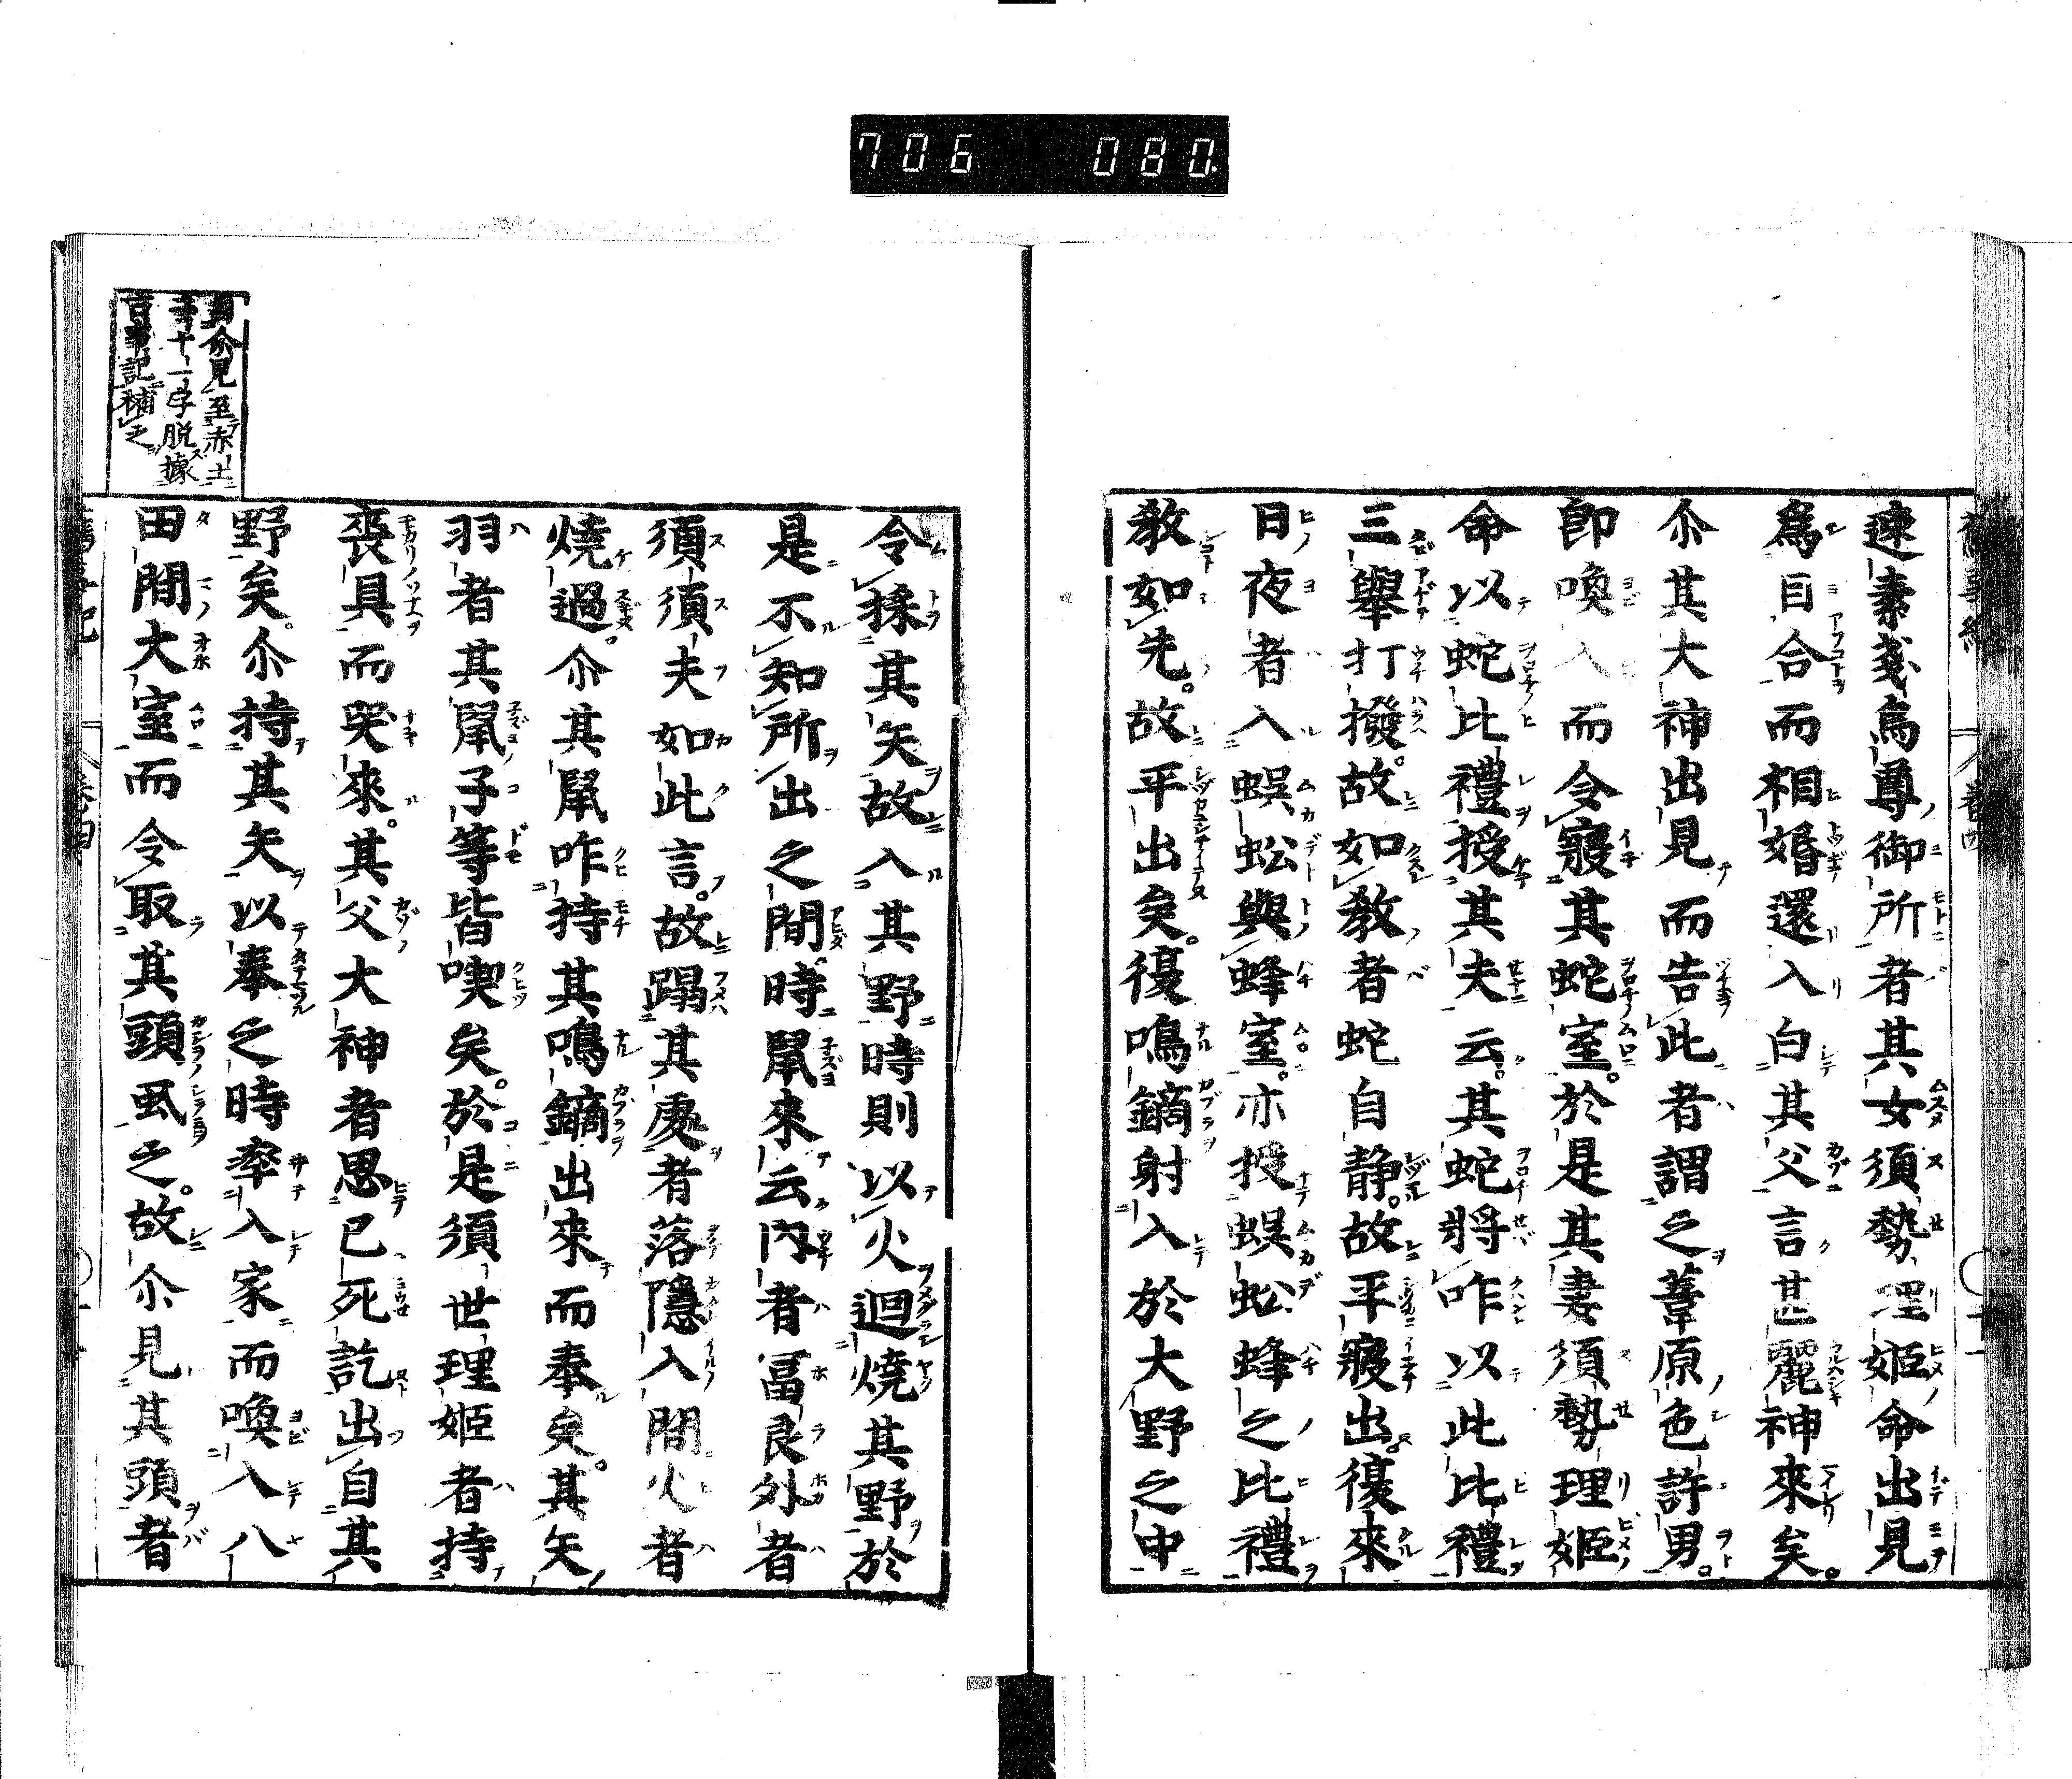 706 080
速素戔烏尊御所者其女須勢理姬命出見
爲目合而相婚還入白其父言甚麗神來矣。
尒其大神出見而告此者謂之葦原色許男。
卽喚入而令寢其蛇室。於是其妻須勢理姬
命以蛇比禮授其夫云。其蛇將咋以此比禮
三擧打撥。故如敎者蛇自静。故平寢出。復來
日夜者入蜈蚣與蜂室。亦授蜈蚣蜂之比禮
敎如先。故平出矣。復鳴鏑射入於大野之中
令採其矢故入其野時則以火迴燒其野於
是不知所出之間。時鼠來云內者冨良外者
須須夫如此言。故蹋其處者落隱入間火者
燒過。尒其鼠咋持其鳴鏑出來而奉矣。其矢
羽者其鼠子等皆喫矣。於是須世理姬者持
喪具而哭來。其父大神者思已死訖出自其
野矣。尒持其矢以奉之時率入家而喚入八
田間大室而令取其頭虱之。故尒見其頭者
見至赤土
十一字脱據
古事記補之